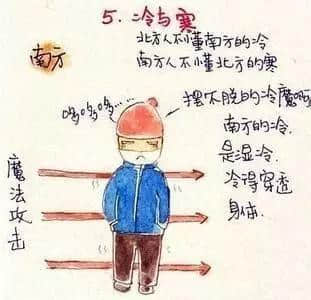 5.冷与寒
北方人不懂南方的冷
南方人不懂北方的寒
南方
哆哆哆……
摆不脱的冷魔啊
南方的冷.
是湿冷.
冷得穿透
身体.
魔法攻击